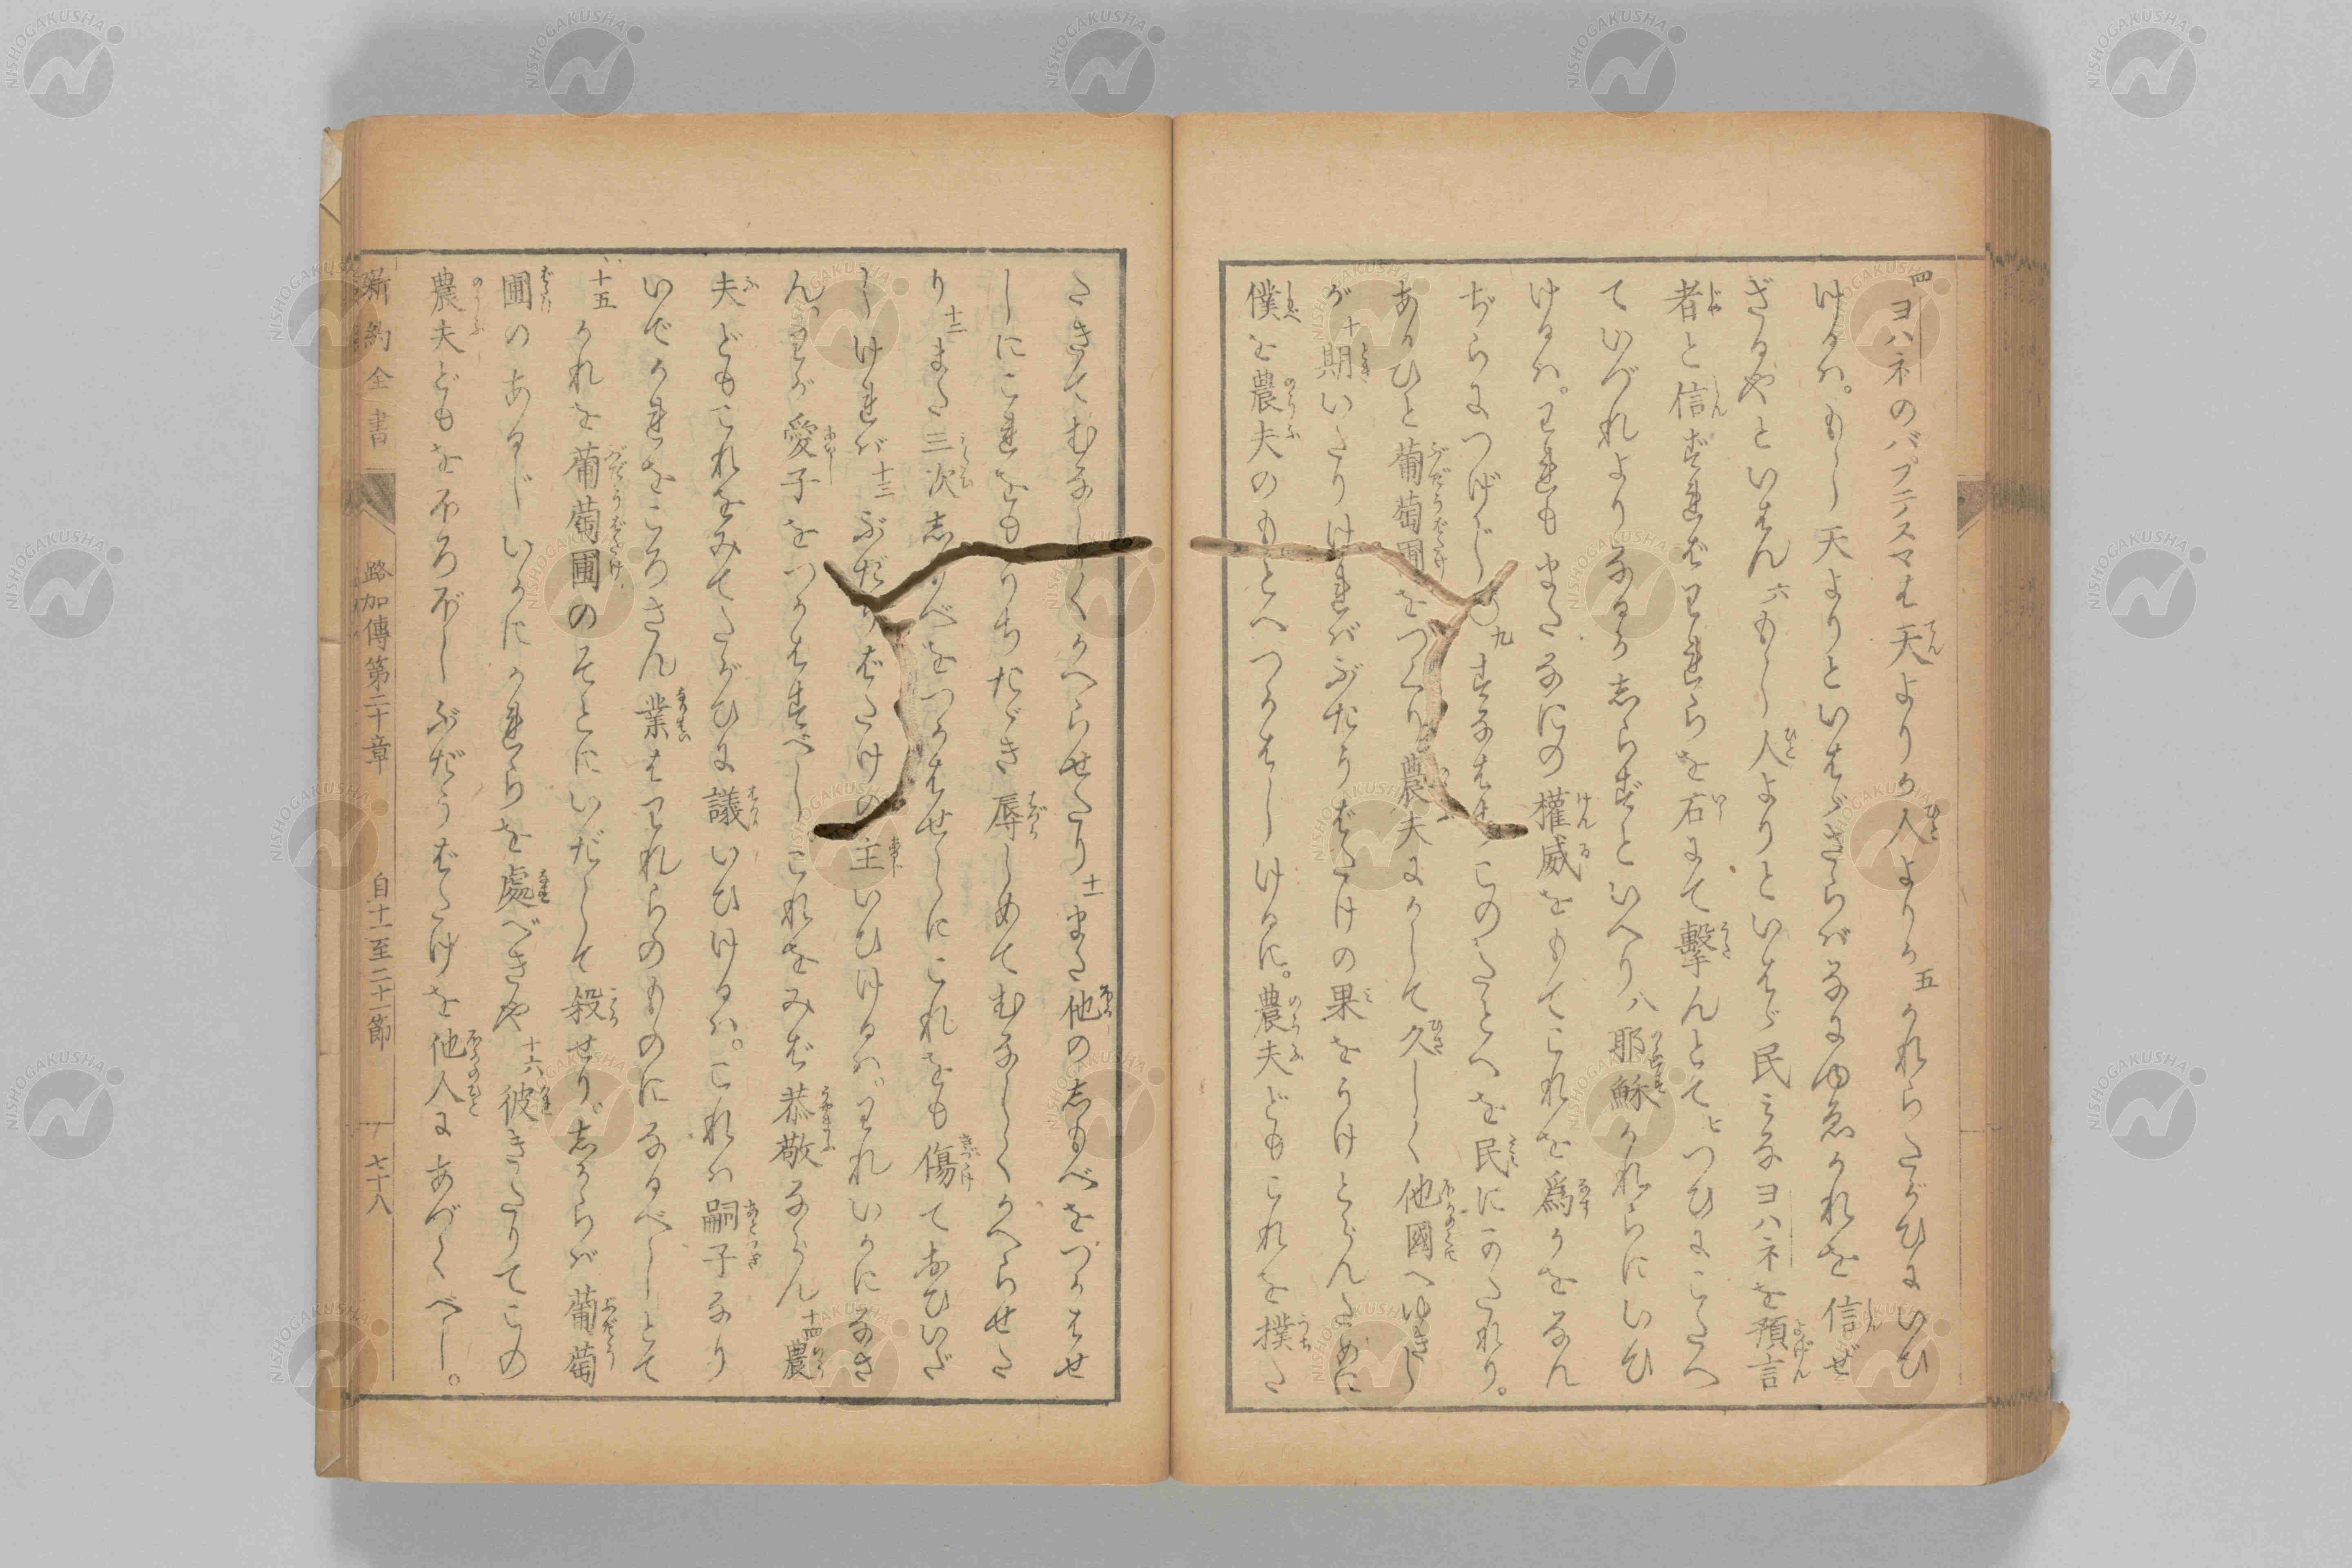 四ヨハネのバプテスマは天よりか人よりか五かれらたがひにいひ
けるハ。もし天よりといはゞさらバなにゆゑかれを信ぜ
ざるやといはん六もし人よりといはゞ民みなヨハネを預言
者と信ずればわれらを石にて擊んとて七つひにこたへ
ていづれよりなるかしらずといへり八耶穌かれらにいひ
けるハ。われもまたなにの權威をもてこれを爲かをなん
ぢらにつげじ〇九すなはちこのたとへを民にかたれり。
あるひと葡萄圃をつくり農夫にかして久しく他國へゆきし
が十期いたりけれバぶだうばたけの果をうけとらんために
僕を農夫のもとへつかはしけるに。農夫どもこれを撲た
たきてむなしくかへらせたり十一また他のしもべをつかはせ
しにこれをもうちたゞき辱しめてむなしくかへらせた
り十二また三次しもべをつかはせしにこれをも傷ておひいだ
しけれバ十三ぶだうばたけの主いひけるハ。われいかになさ
ん。わが愛子をつかはすべしこれをみば恭敬ならん十四農
夫どもこれをみてたがひに議いひけるハ。これハ嗣子なり
いでかれをころさん業はわれらのものになるべしとて
十五かれを葡萄圃のそとにいだして殺せり。しからバ葡萄
圃のあるじいかにかれらを處べきや十六彼きたりてこの
農夫どもをほろぼしぶだうばたけを他人にあづくべし。
新約全書 路加傳第二十章 自十一至二十一節 七十八